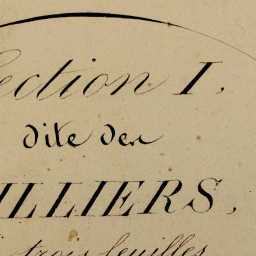 ection I,
dite des
ILLIERS,
trois feuilles